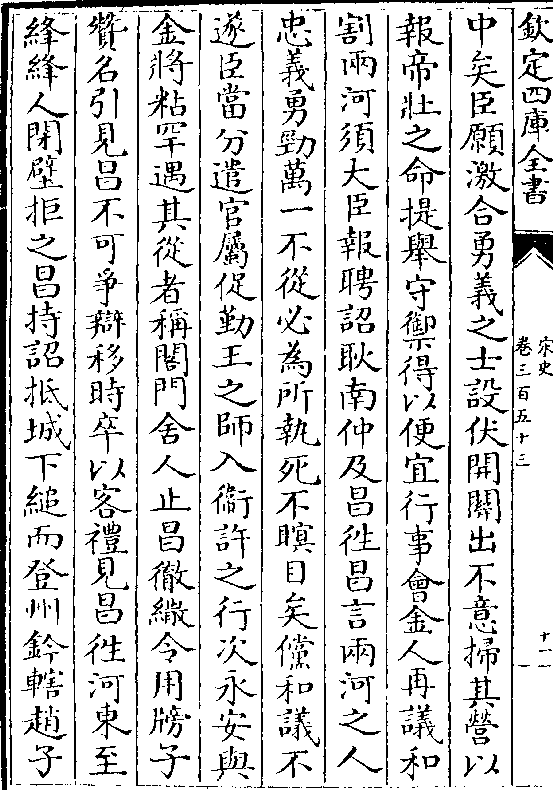 欽定四庫全書
宋史
卷三百五十三
十一
中矣臣願激合勇義之士設伏開關出不意掃其營以
報帝壯之命提舉守禦得以便宜行事會金人再議和
割兩河須大臣報聘詔耿南仲及昌徃昌言兩河之人
忠義勇勁萬一不從必為所執死不瞑目矣儻和議不
遂臣當分遣官屬促勤王之師入衞許之行次永安與
金將粘罕遇其從者稱閤門舍人止昌徹繖令用牓子
贊名引見昌不可爭辯移時卒以客禮見昌徃河東至
絳絳人閉壁拒之昌持詔抵城下縋而登州鈐轄趙子